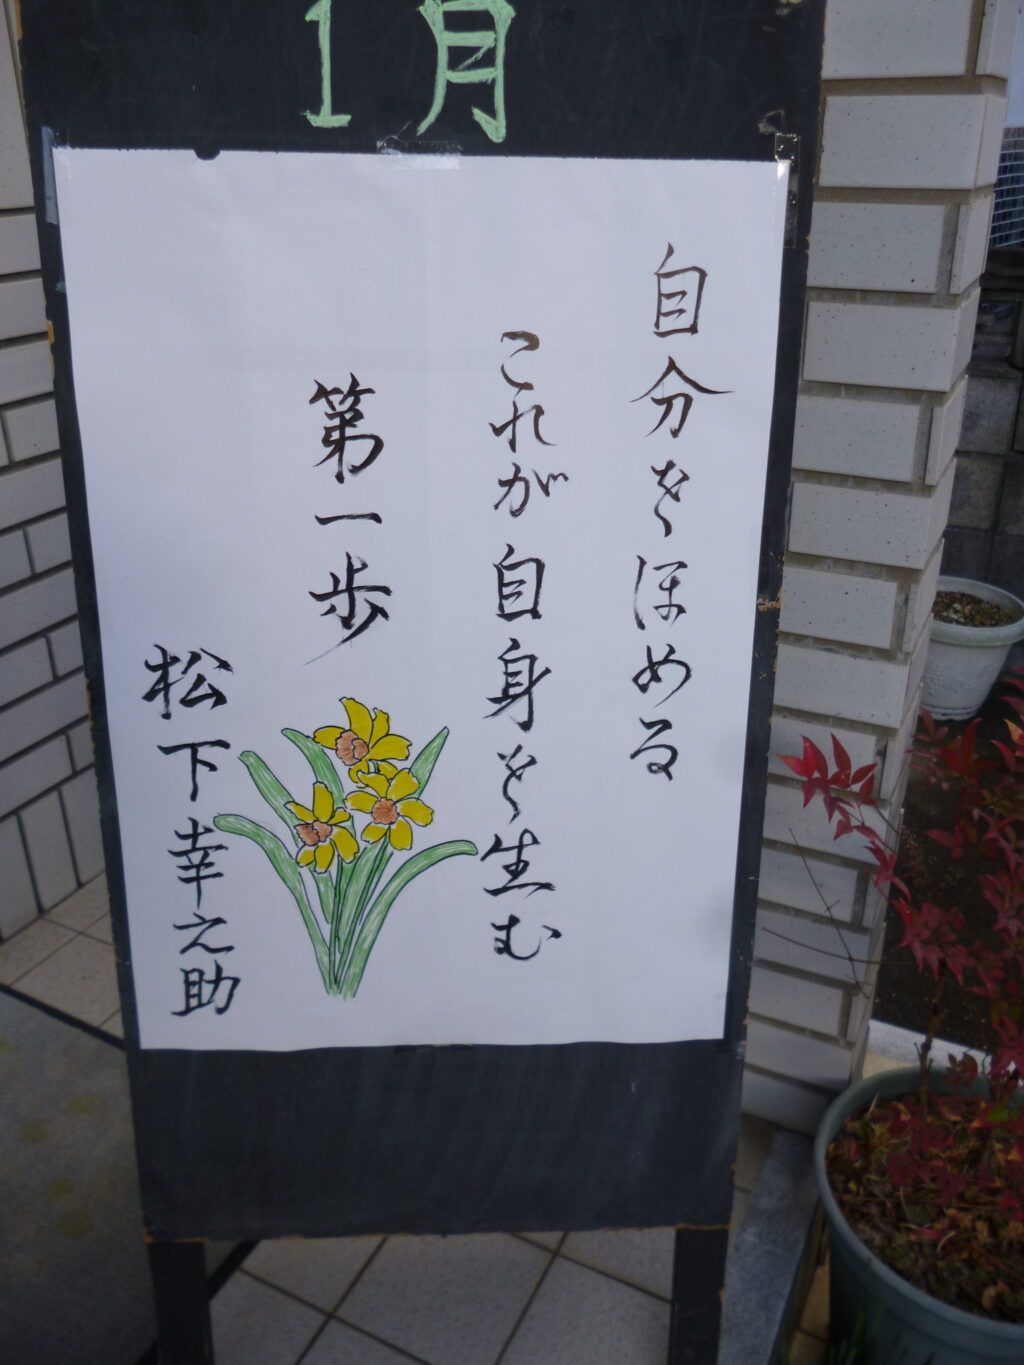 1月
自分をほめる
これが自身を生む
第一歩
松下幸之助